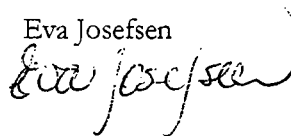 Eva Josefsen
Eva Josefsen